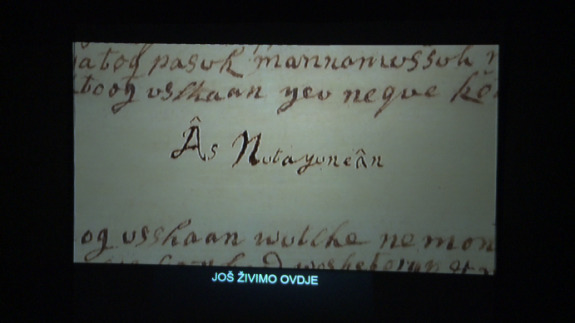 atog pasuk mannonwssuk
toog usshaan yeu neque
Âs Nutayuneân
og usshaan wutche nemon
JOŠ ŽIVIMO OVDJE